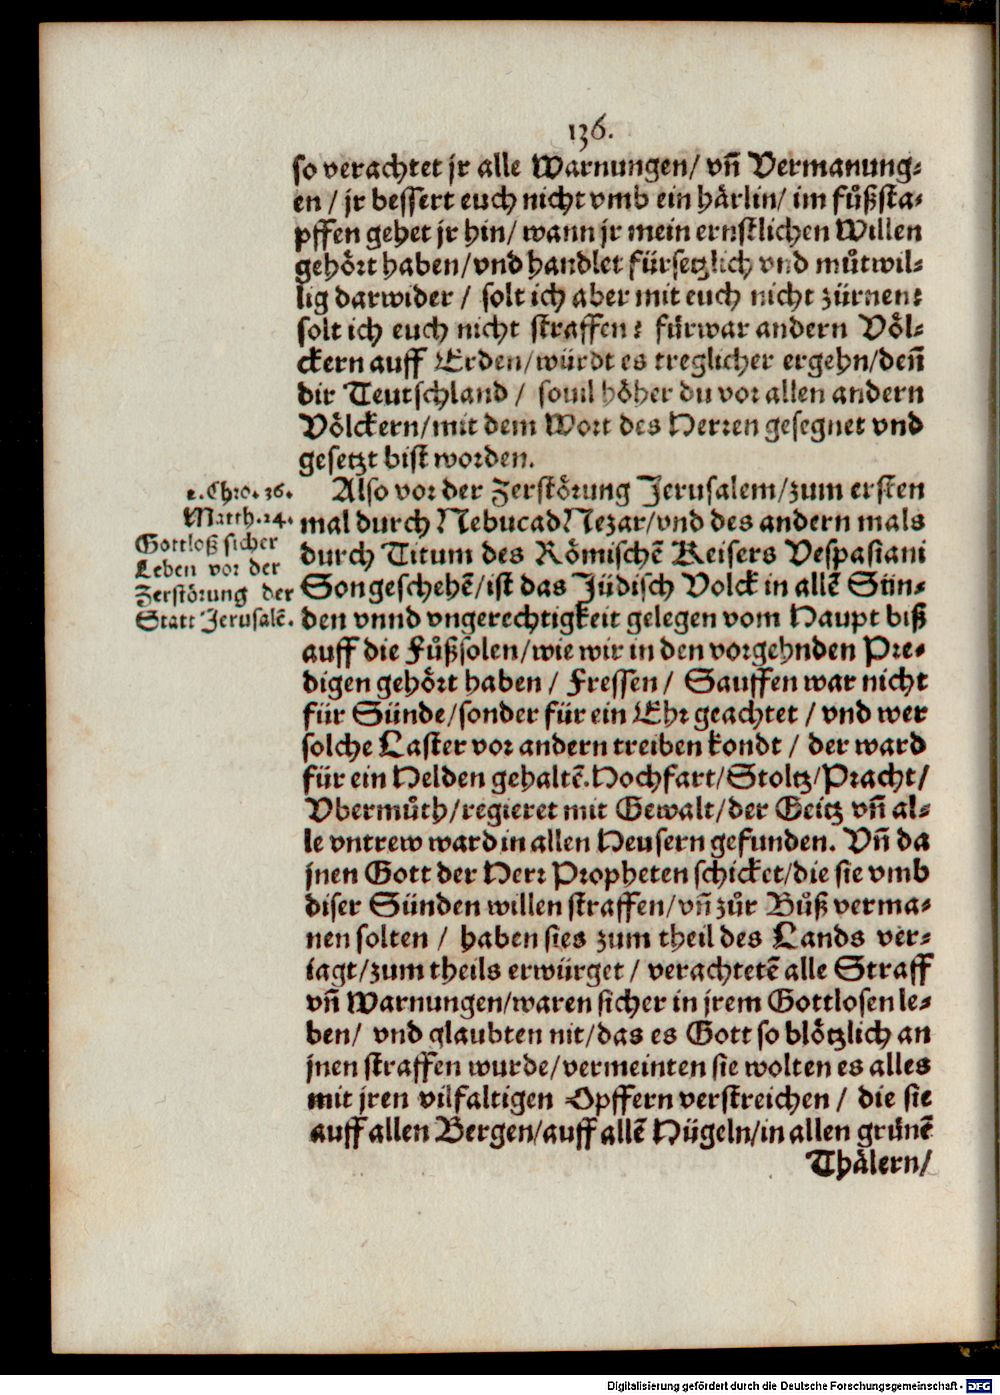 136.
so verachtet jr alle Warnungen/ vñ Vermanung⸗
en / jr bessert euch nicht vmb ein härlin/ im fůßsta⸗
pffen gehet jr hin/ wann jr mein ernstlichen Willen
gehört haben/vnd handlet fürsetzlich vnd můtwil⸗
lig darwider / solt ich aber mit euch nicht zürnen?
solt ich euch nicht straffen? fürwar andern Völ⸗
ckern auff Erden/würdt es treglicher ergehn/deñ
dir Teutschland / souil höher du vor allen andern
Völckern/mit dem Wort des Herren gesegnet vnd
gesetzt bist worden.
2. Chro. 36.
Matth. 24.
Gottloß sicher
Leben vor der
Zerstörung der
Statt Jerusalē.
Also vor der Zerstörung Jerusalem/zum ersten
mal durch NebucadNezar/vnd des andern mals
durch Titum des Römischē Keisers Vespasiani
Son geschehē/ist das Jüdisch Volck in allē Sün⸗
den vnnd vngerechtigkeit gelegen vom Haupt biß
auff die Fůßsolen/wie wir in den vorgehnden Pre⸗
digen gehört haben / Fressen / Sauffen war nicht
für Sünde/sonder für ein Ehr geachtet / vnd wer
solche Laster vor andern treiben kondt / der ward
für ein Helden gehaltē. Hochfart/Stoltz/Pracht/
Vbermůth/regieret mit Gewalt/der Geitz vñ al⸗
le vntrew ward in allen Heusern gefunden. Vñ da
jnen Gott der Herr Propheten schicket/die sie vmb
diser Sünden willen straffen/vñ zůr Bůß verma⸗
nen solten / haben sies zum theil des Lands ver⸗
iagt/zum theils erwürget / verachtetē alle Straff
vñ Warnungen/waren sicher in jrem Gottlosen le⸗
ben/ vnd glaubten nit/das es Gott so blötzlich an
jnen straffen wurde/vermeinten sie wolten es alles
mit jren vilfaltigen Opffern verstreichen / die sie
auff allen Bergen/auff allē Hügeln/in allen grünē
Thälern/
Digitalisierung gefördert durch die Deutsche Forschungsgemeinschaft - DFG